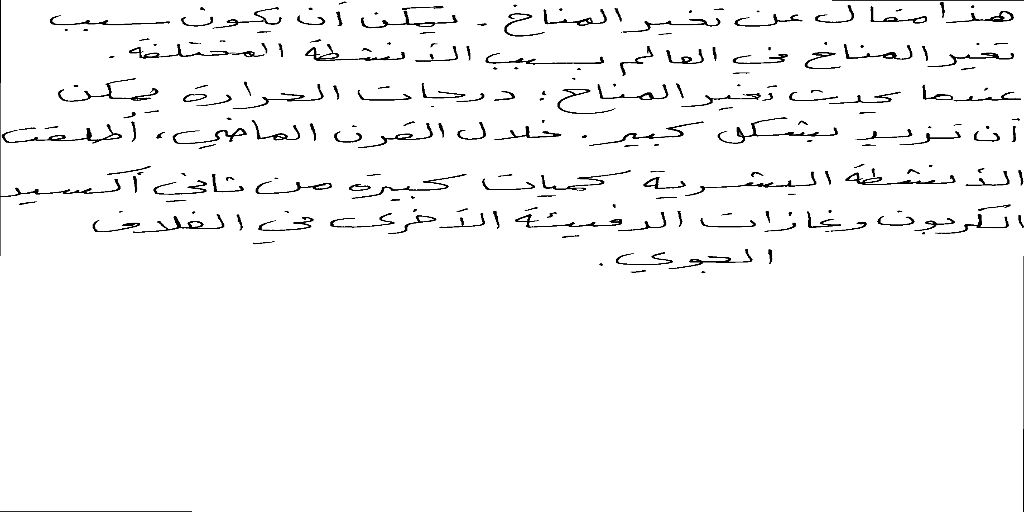 هذا مقال عن تغير المناخ. يمكن أن يكون سبب
تغير المناخ في العالم بسبب الأنشطة المختلفة.
عندما يحدث تغير المناخ؛ درجات الحرارة يمكن
أن تزيد بشكل كبير. خلال القرن الماضي، أطلقت
الأنشطة البشرية كميات كبيرة من ثاني أكسيد
الكربون وغازات الدفيئة الأخرى في الغلاف
الجوي.